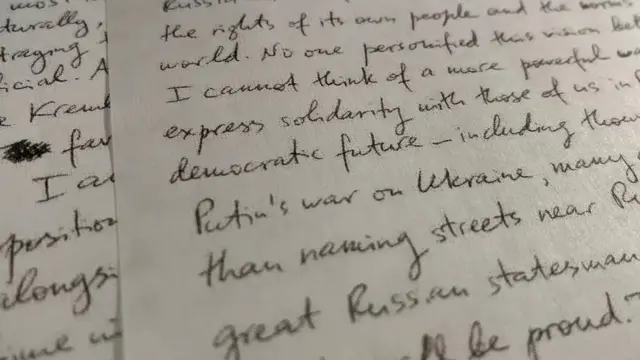 most
turally,
traging
icial. A
Kreml
fav
I a
position
alongsi
time wi
Russia
the rights of its own people and the norms
world. No one personified this vision be
I cannot think of a more powerful wa
express solidarity with those of us in
democratic future – including thou
Putin's war on Ukraine, many
than naming streets near Ru
great Russian statesman
ll be proud.